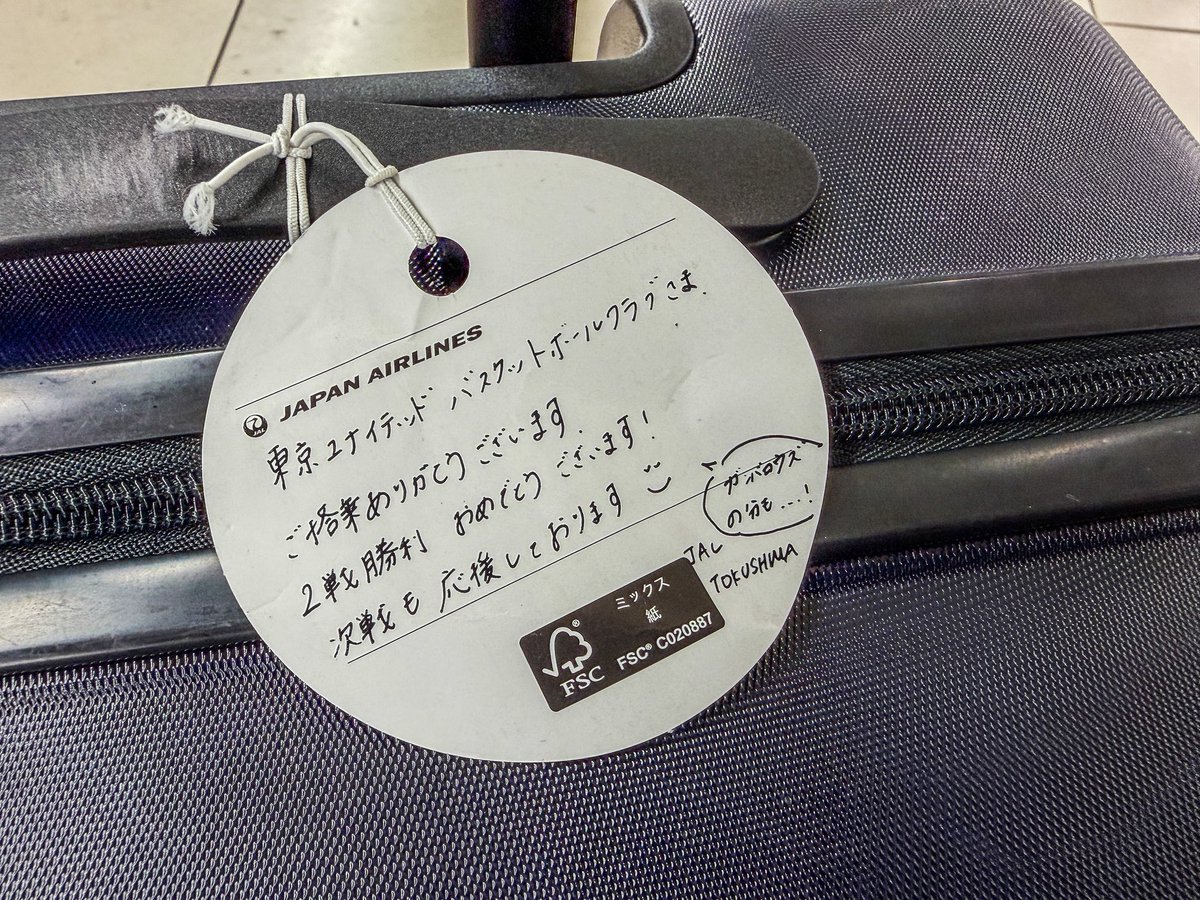 JAPAN AIRLINES
東京ユナイテッド バスケットボールクラブさま.
ご搭乗ありがとうございます.
2戦勝利 おめでとうございます!
次戦も 応援しております
ガンバロウズ
の分も...!
JAL
TOKUSHIMA
ミックス
紙
FSC® C020887
FSC